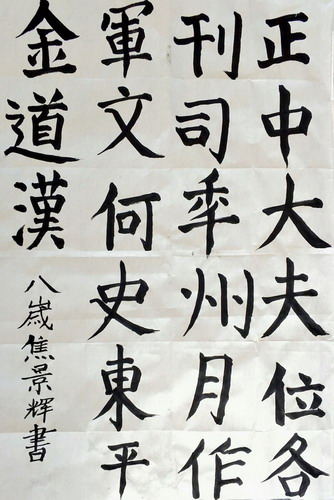 正中大夫位各
刊司年州月作
軍文何史東平
金道漢
八歲焦景輝書